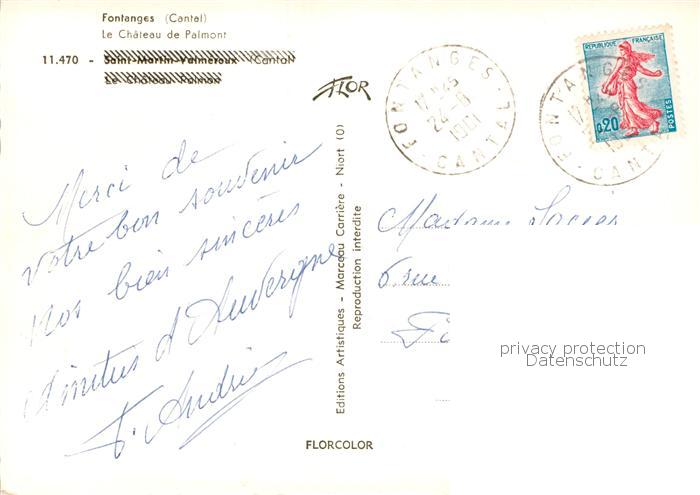 Fontanges (Cantal)
Le Château de Palmont
11.470 - Saint-Martin-Valmeroux (Cantal
Le Château Palmon
FLOR
FONTANGES
17H45
24-6
1961
CANTAL
REPUBLIQUE FRANÇAISE
0,20
POSTES
FONTANGES
CANTAL
Merci de
votre bon souvenir
Nos bien sincères
Amitiés d'Auvergne
Editions Artistiques - Marceau Carrière - Niort (O)
Reproduction interdite
Madame
6 rue
privacy protection
Datenschutz
FLORCOLOR